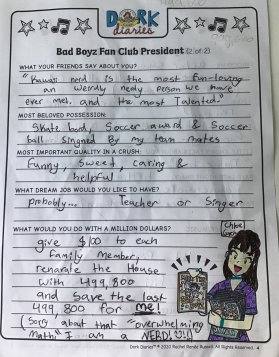 DORK
diaries
Bad Boyz Fan Club President (2 of 2)
WHAT YOUR FRIENDS SAY ABOUT YOU?
"Kawaii nerd is the most fun-loving
an weirdly nerdy person we have
ever met, and the most Talented."
MOST BELOVED POSSESSION:
Skate board, Soccer award & Soccer
ball singned by my team mates
MOST IMPORTANT QUALITY IN A CRUSH:
Funny, Sweet, caring &
helpful
WHAT DREAM JOB WOULD YOU LIKE TO HAVE?
probobly... Teacher or Singer
WHAT WOULD YOU DO WITH A MILLION DOLLARS?
give $100 to each
family member,
renarate the House
with 499,800
and save the last
499,800 for me!
(Sorry about that overwhelming
math! I am a NERD!
Chloe
Dork Diaries™ © 2020 Rachel Renée Russell. All Rights Reserved. 4